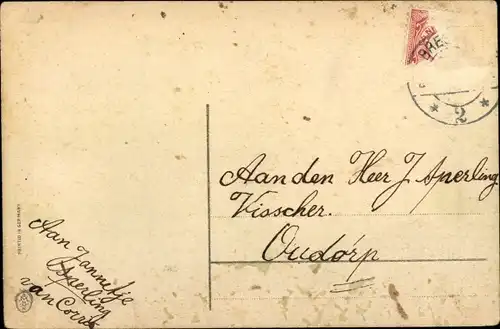 BRE
* 2 *
Aan den Heer J Sperling
Visscher.
Oudorp
Aan Jannetje
Sperling
van Corrie
PRINTED IN GERMANY